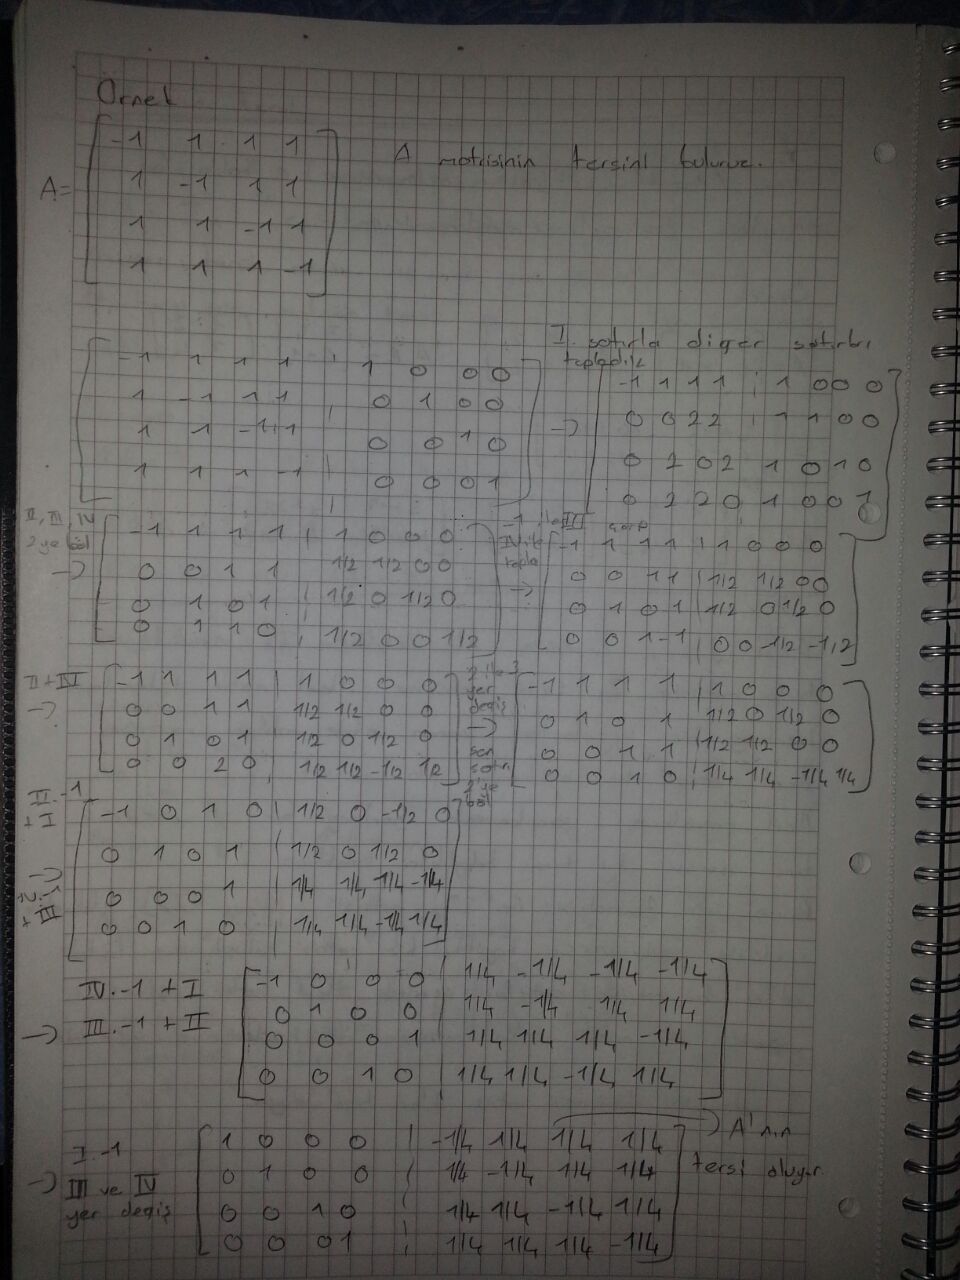 Örnek
A= [ -1 1 1 1
1 -1 1 1
1 1 -1 1
1 1 1 -1 ]
A matrisinin tersini bulunuz.
-1 1 1 1 | 1 0 0 0
1 -1 1 1 | 0 1 0 0
1 1 -1 1 | 0 0 1 0
1 1 1 -1 | 0 0 0 1
I. satırla diger satırları
topladık
→
-1 1 1 1 | 1 0 0 0
0 0 2 2 | 1 1 0 0
0 2 0 2 1 0 1 0
0 2 2 0 1 0 0 1
II, III, IV
2 ye böl
→
-1 1 1 1 | 1 0 0 0
0 0 1 1 1/2 1/2 0 0
0 1 0 1 | 1/2 0 1/2 0
0 1 1 0 | 1/2 0 0 1/2
-1 ile III çarp
IV ile
topla
→
-1 1 1 1 | 1 0 0 0
0 0 1 1 | 1/2 1/2 0 0
0 1 0 1 | 1/2 0 1/2 0
0 0 1 -1 | 0 0 -1/2 -1/2
II+IV
→
-1 1 1 1 | 1 0 0 0
0 0 1 1 1/2 1/2 0 0
0 1 0 1 | 1/2 0 1/2 0
0 0 2 0 | 1/2 1/2 -1/2 1/2
2 ile 3
yer
degis
→
son
satır
2'ye
böl
-1 1 1 1 | 1 0 0 0
0 1 0 1 | 1/2 0 1/2 0
0 0 1 1 | 1/2 1/2 0 0
0 0 1 0 | 1/4 1/4 -1/4 1/4
II.-1
+ I
→
-1 0 1 0 | 1/2 0 -1/2 0
0 1 0 1 | 1/2 0 1/2 0
0 0 0 1 | 1/4 1/4 1/4 -1/4
0 0 1 0 | 1/4 1/4 -1/4 1/4
IV.-1 + I
III.-1 + II
→
-1 0 0 0 | 1/4 -1/4 -1/4 -1/4
0 1 0 0 | 1/4 -1/4 1/4 1/4
0 0 0 1 | 1/4 1/4 1/4 -1/4
0 0 1 0 | 1/4 1/4 -1/4 1/4
I.-1
→ III ve IV
yer degiş
1 0 0 0 | -1/4 1/4 1/4 1/4
0 1 0 0 | 1/4 -1/4 1/4 1/4
0 0 1 0 | 1/4 1/4 -1/4 1/4
0 0 0 1 | 1/4 1/4 1/4 -1/4
→ A'nın
tersi oluyor.